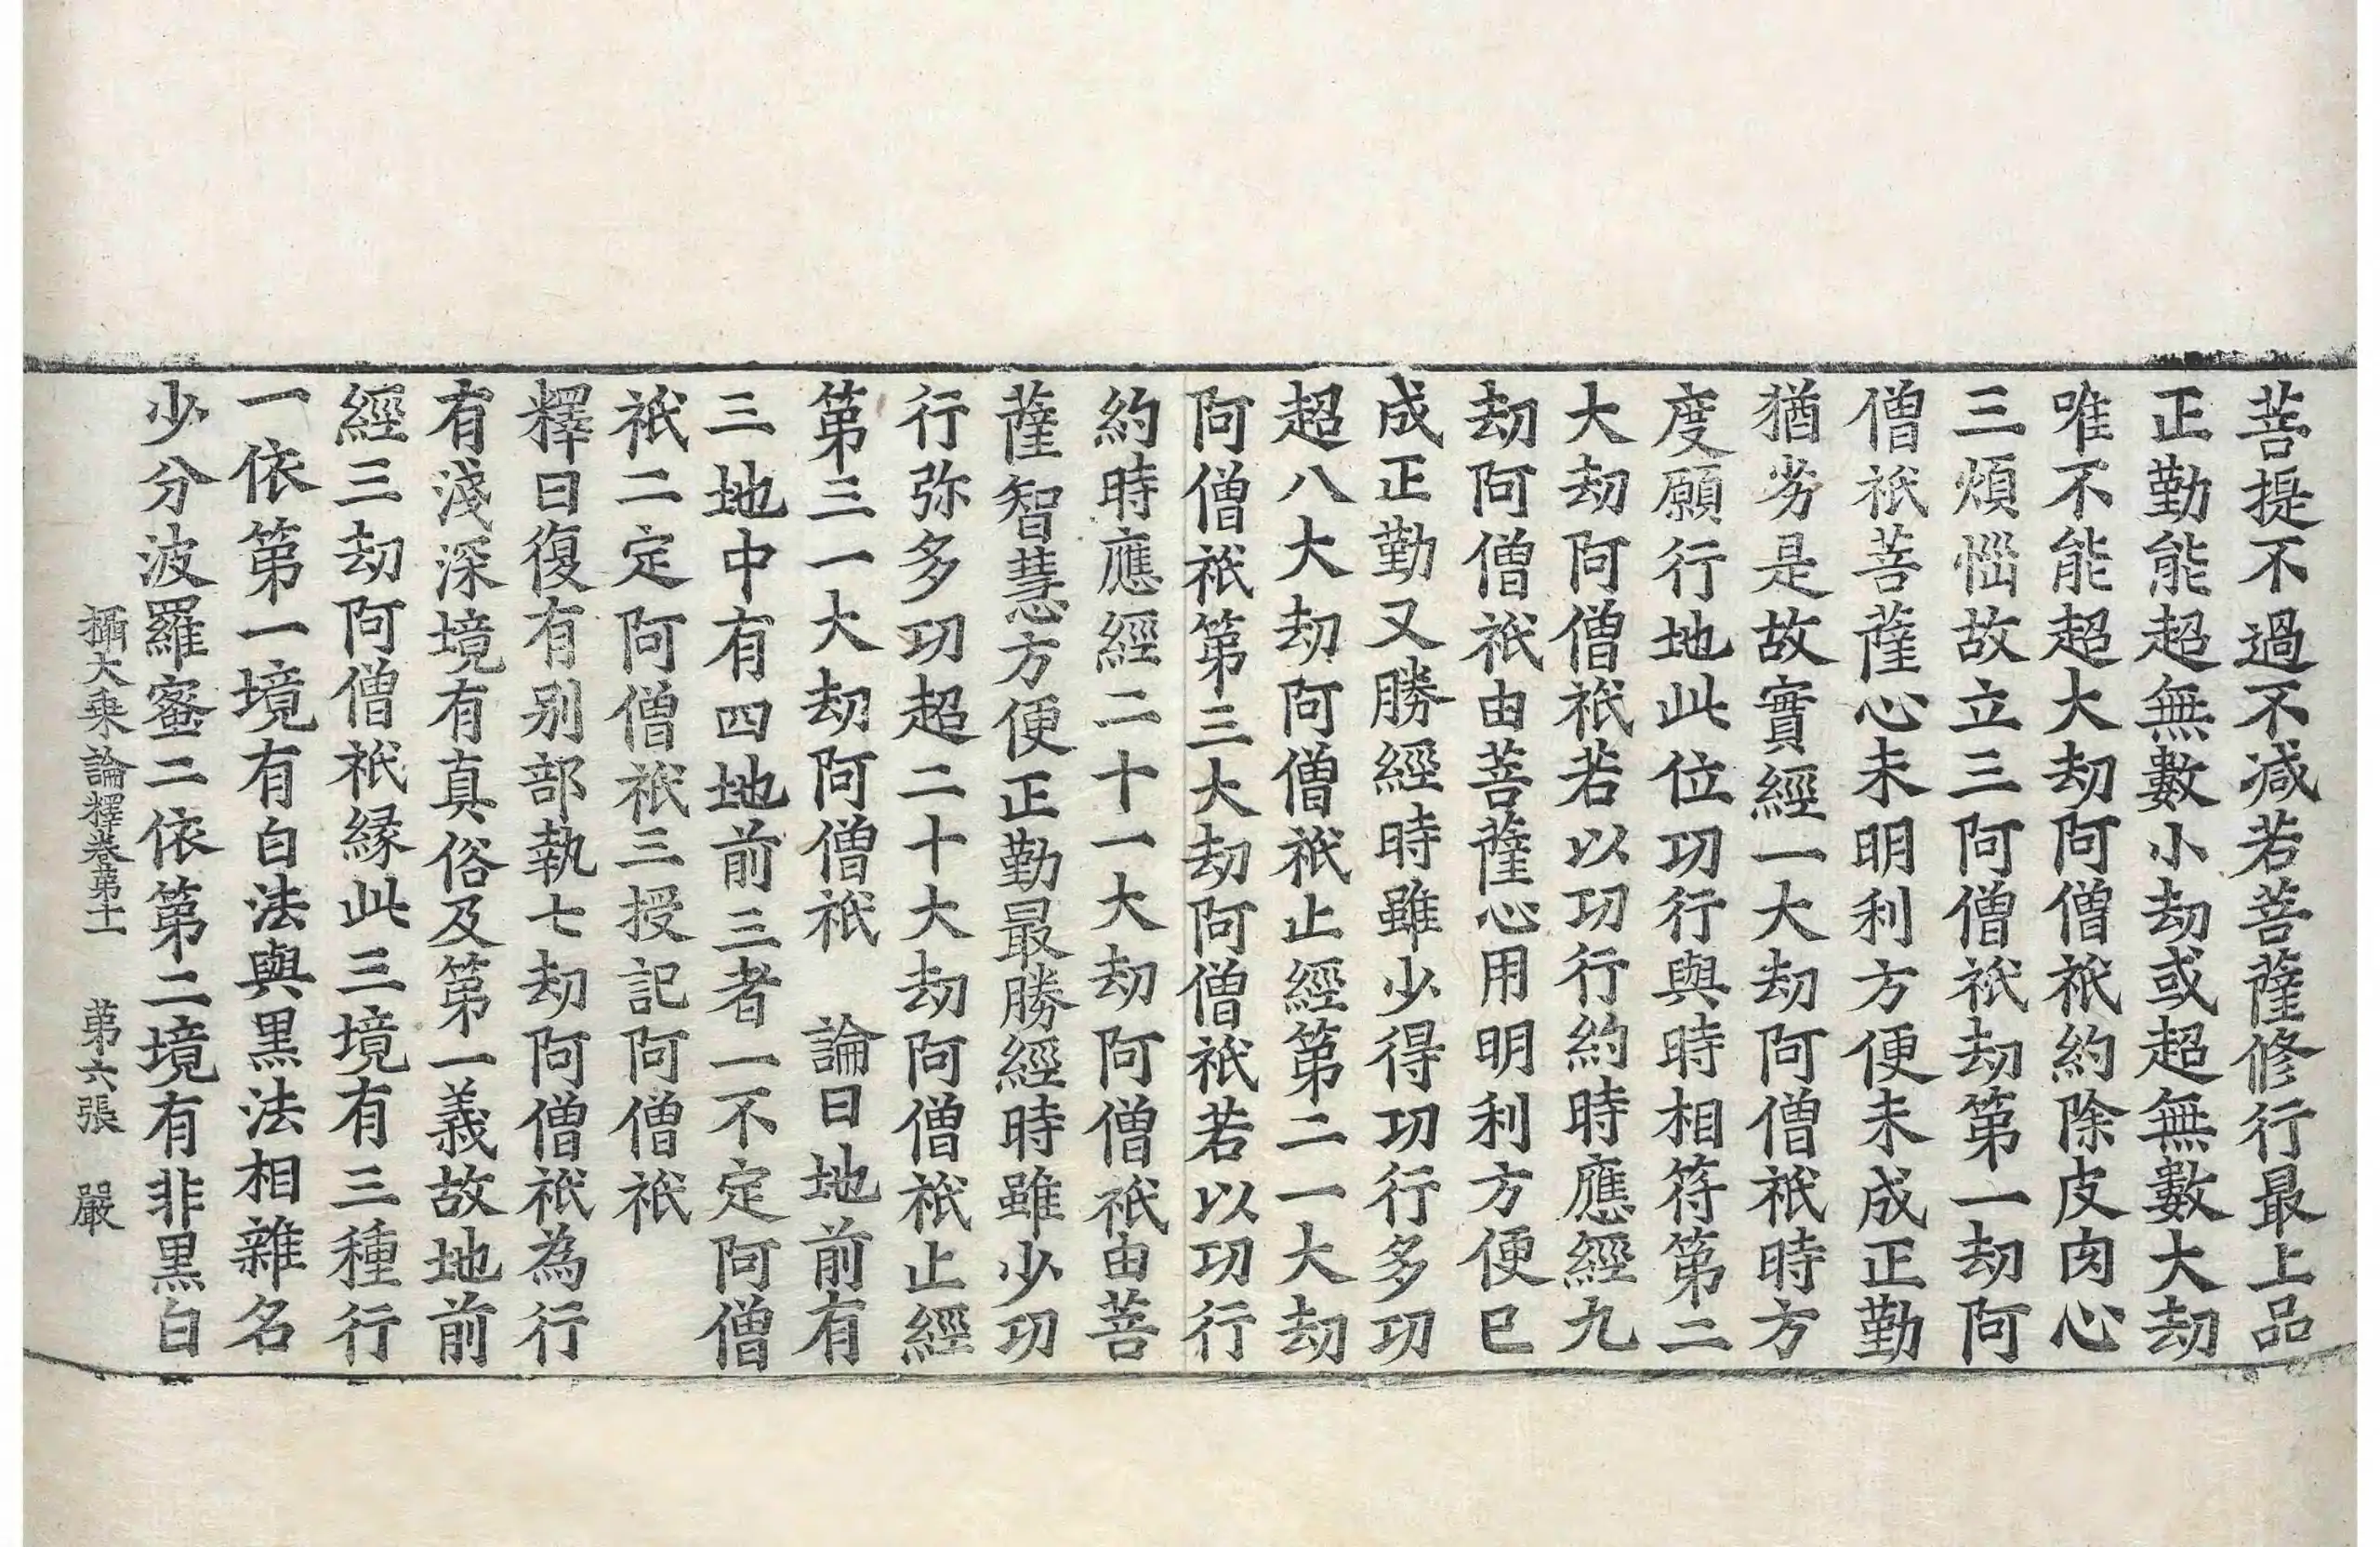 菩提不過不减若菩薩修行最上品
正勤能超無數小劫或超無數大劫
唯不能超大劫阿僧祇約除皮肉心
三煩惱故立三阿僧祇劫第一劫阿
僧祇菩薩心未明利方便未成正勤
猶劣是故實經一大劫阿僧祇時方
度願行地此位功行與時相符第二
大劫阿僧祇若以功行約時應經九
劫阿僧祇由菩薩心用明利方便已
成正勤又勝經時雖少得功行多功
超八大劫阿僧祇止經第二一大劫
阿僧祇第三大劫阿僧祇若以功行
約時應經二十一大劫阿僧祇由菩
薩智慧方便正勤最勝經時雖少功
行弥多功超二十大劫阿僧祇止經
第三一大劫阿僧祇　論曰地前有
三地中有四地前三者一不定阿僧
祇二定阿僧祇三授記阿僧祇
釋曰復有别部執七劫阿僧祇為行
有淺深境有真俗及第一義故地前
經三劫阿僧祇縁此三境有三種行
一依第一境有白法與黑法相雜名
少分波羅蜜二依第二境有非黑白
攝大乘論釋卷第十一　第六張　嚴